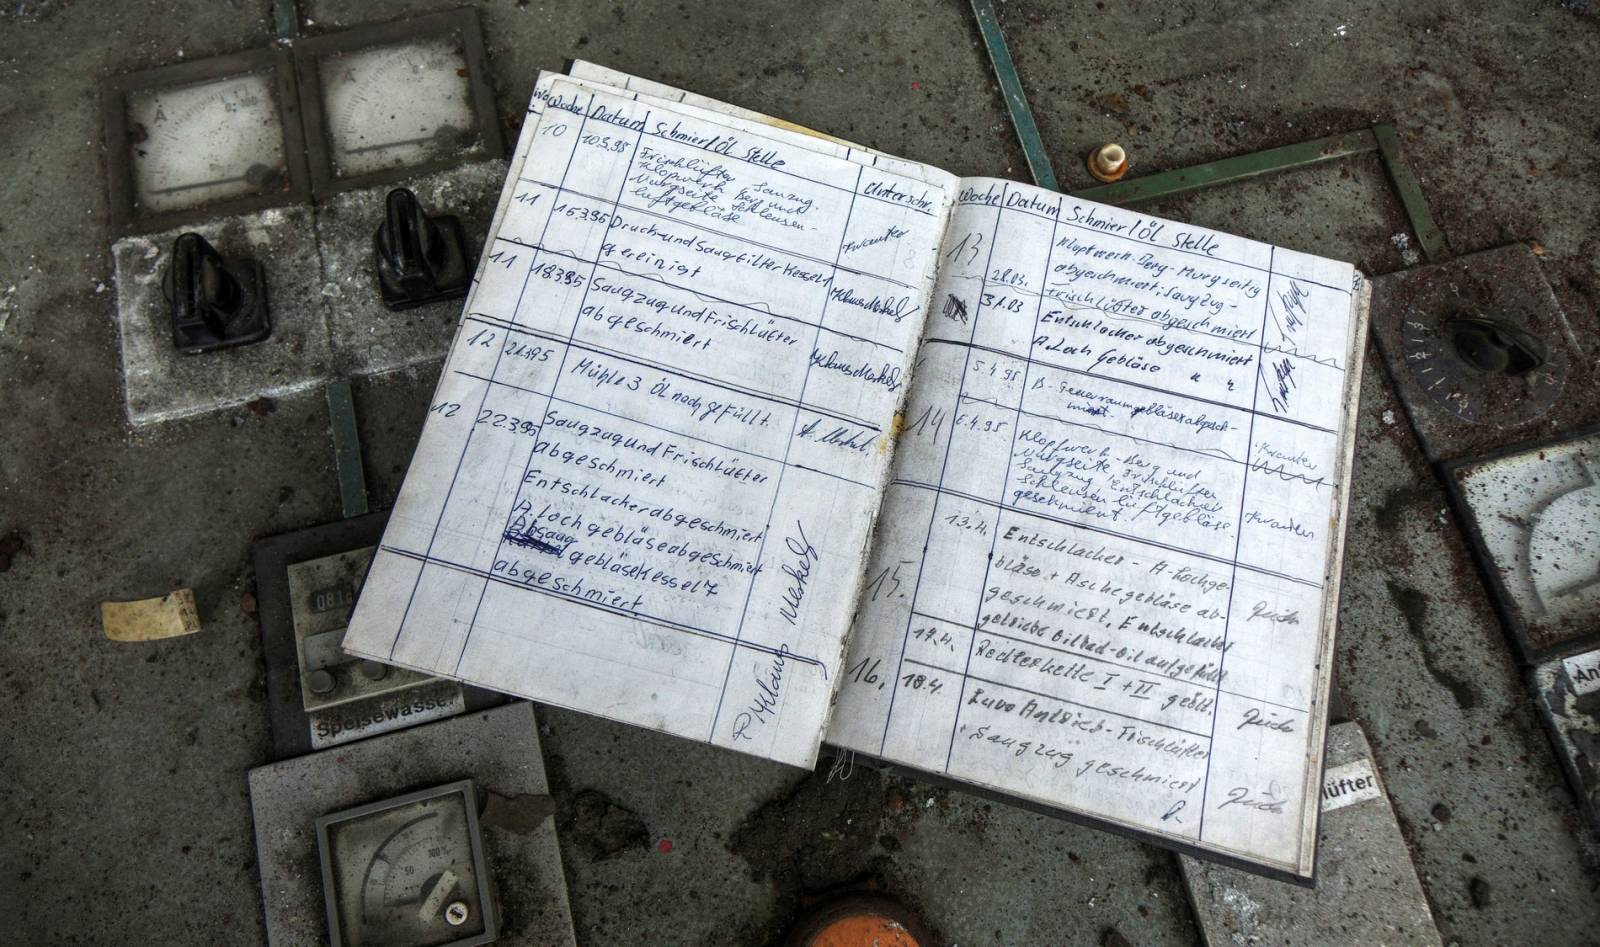 Woche Datum Schmier/Öl Stelle Unterschr.
10 10.3.95 Frischlüfter Saugzug.
Klopwerk Berg und
Murgseite Schleusen-
luftgebläse
Kwanter
11 15.3.95 Druck und Saugfilter Kessel 1
gereinigt
Klaus Merkel
11 18.3.95 Saugzug und Frischlüfter
abgeschmiert
Klaus Merkel
12 21.3.95 Mühle 3 Öl nachgefüllt.
K. Merkel
12 22.3.95 Saugzug und Frischlüfter
abgeschmiert
Entschlacher abgeschmiert
A. Loch gebläse abgeschmiert
Absaug
gebläse Kessel 7
abgeschmiert
Klaus Merkel
Woche Datum Schmier/Öl Stelle
13 Klopfwerk-Berg-Murgseitig
abgeschmiert; Saugzug-
28.03. Frischlüfter abgeschmiert
31.03 Entschlacher abgeschmiert
A. Loch Gebläse " "
14 5.4.95 B-Feuerraumgebläse abgesch-
miert
Kwanter
6.4.95 Klopfwerk-Berg und
Murgseite, Frischlüfter
Saugzug, Entschlacher
Schleusen luftgebläse
geschmiert!
Kwanter
15. 13.4. Entschlacher - A-Lochge-
bläse + Aschegebläse ab-
geschmiert, Entschlacher
getriebe Ölbad-Öl aufgefüllt
16. 17.4. Rosterkette I + II geölt.
18.4. Luvo Antrieb - Frischlüfter
+ Saugzug geschmiert
A
0 100
A
081
Speisewasser
50
100 %
lüfter
An